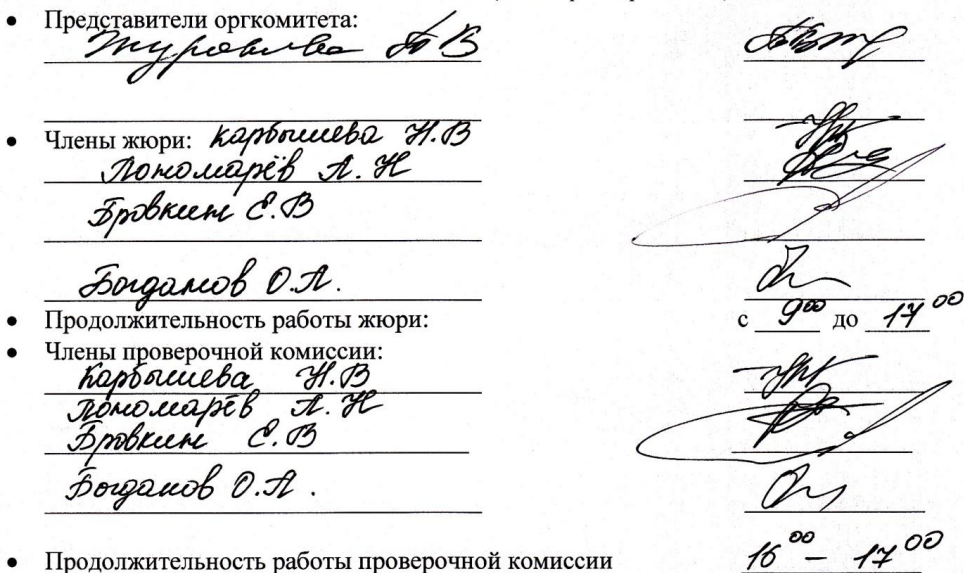 • Представители оргкомитета:
Журавлева Т В
• Члены жюри: Карбышева Н.В
Пономарёв А. Н
Бровкин Е.В
Богданов О.А.
• Продолжительность работы жюри: с 9 00 до 17 00
• Члены проверочной комиссии:
Карбышева Н.В
Пономарёв А. Н
Бровкин Е.В
Богданов О.А.
• Продолжительность работы проверочной комиссии 16 00 – 17 00